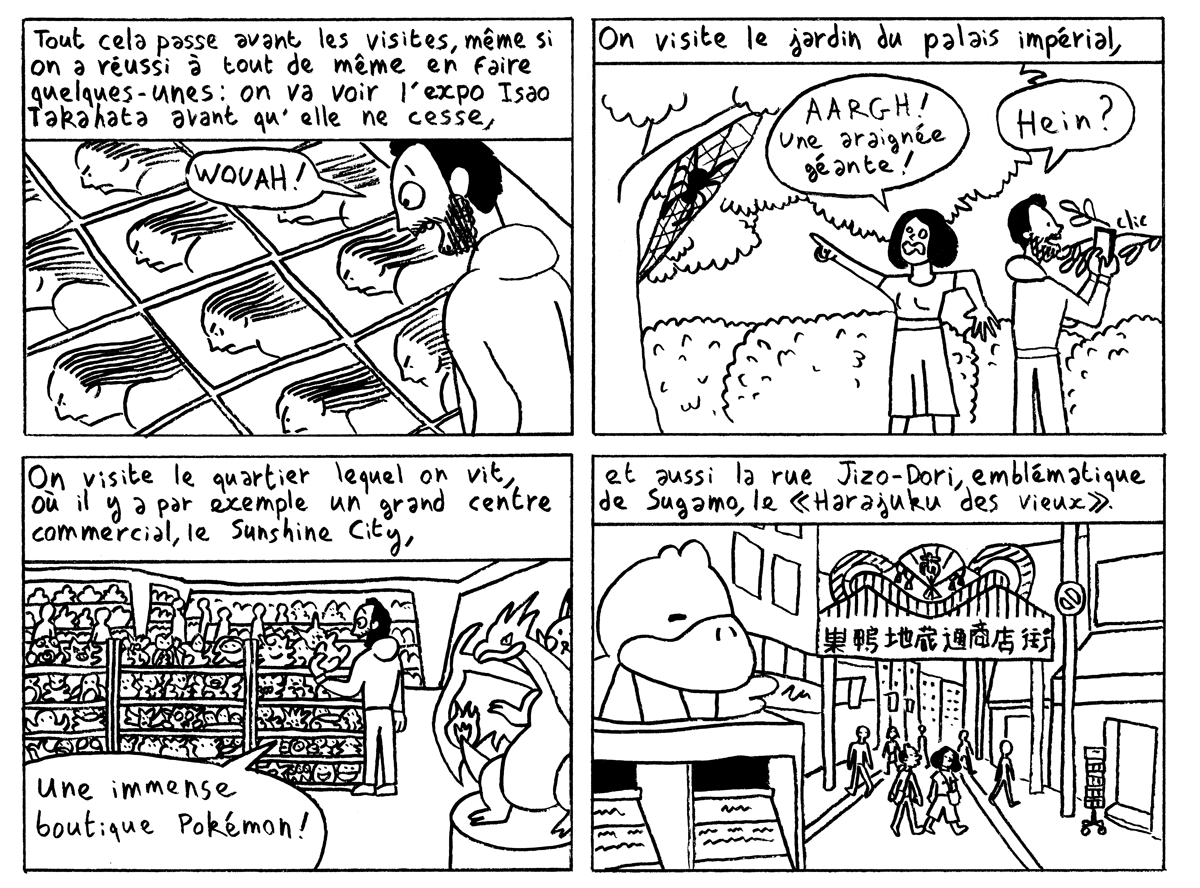 Tout cela passe avant les visites, même si
on a réussi à tout de même en faire
quelques-unes : on va voir l'expo Isao
Takahata avant qu'elle ne cesse,
WOUAH !
On visite le jardin du palais impérial,
AARGH !
une araignée
géante !
Hein ?
clic
On visite le quartier lequel on vit,
où il y a par exemple un grand centre
commercial, le Sunshine City,
Une immense
boutique Pokémon !
et aussi la rue Jizo-Dori, emblématique
de Sugamo, le «Harajuku des vieux».
巣鴨地蔵通商店街